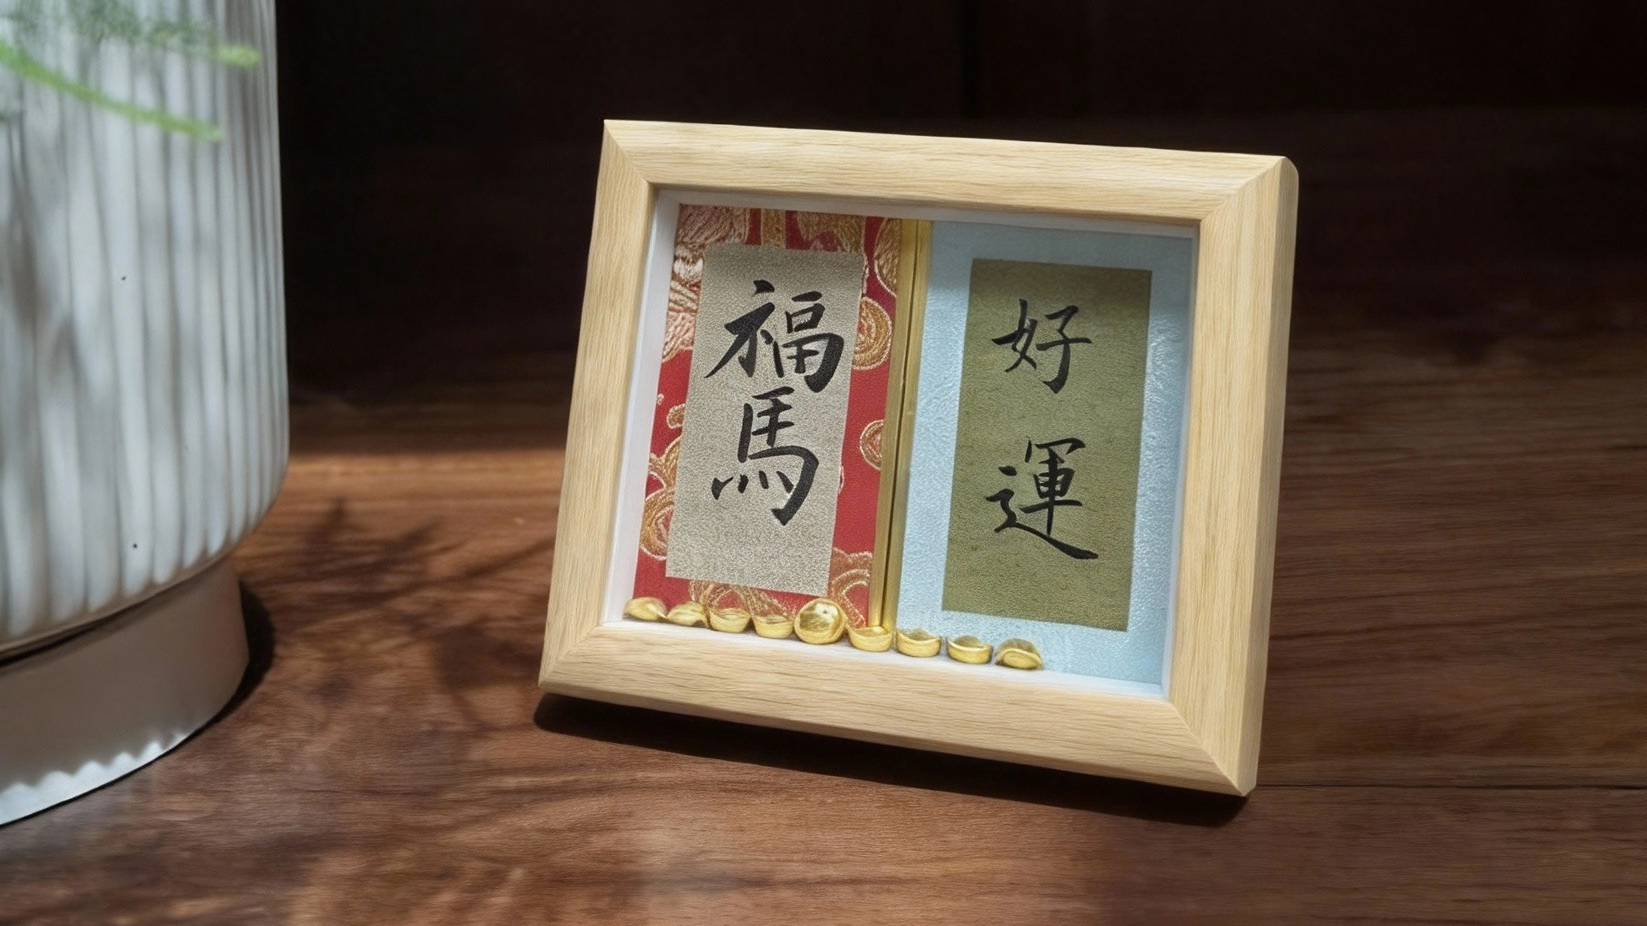 福馬
好運